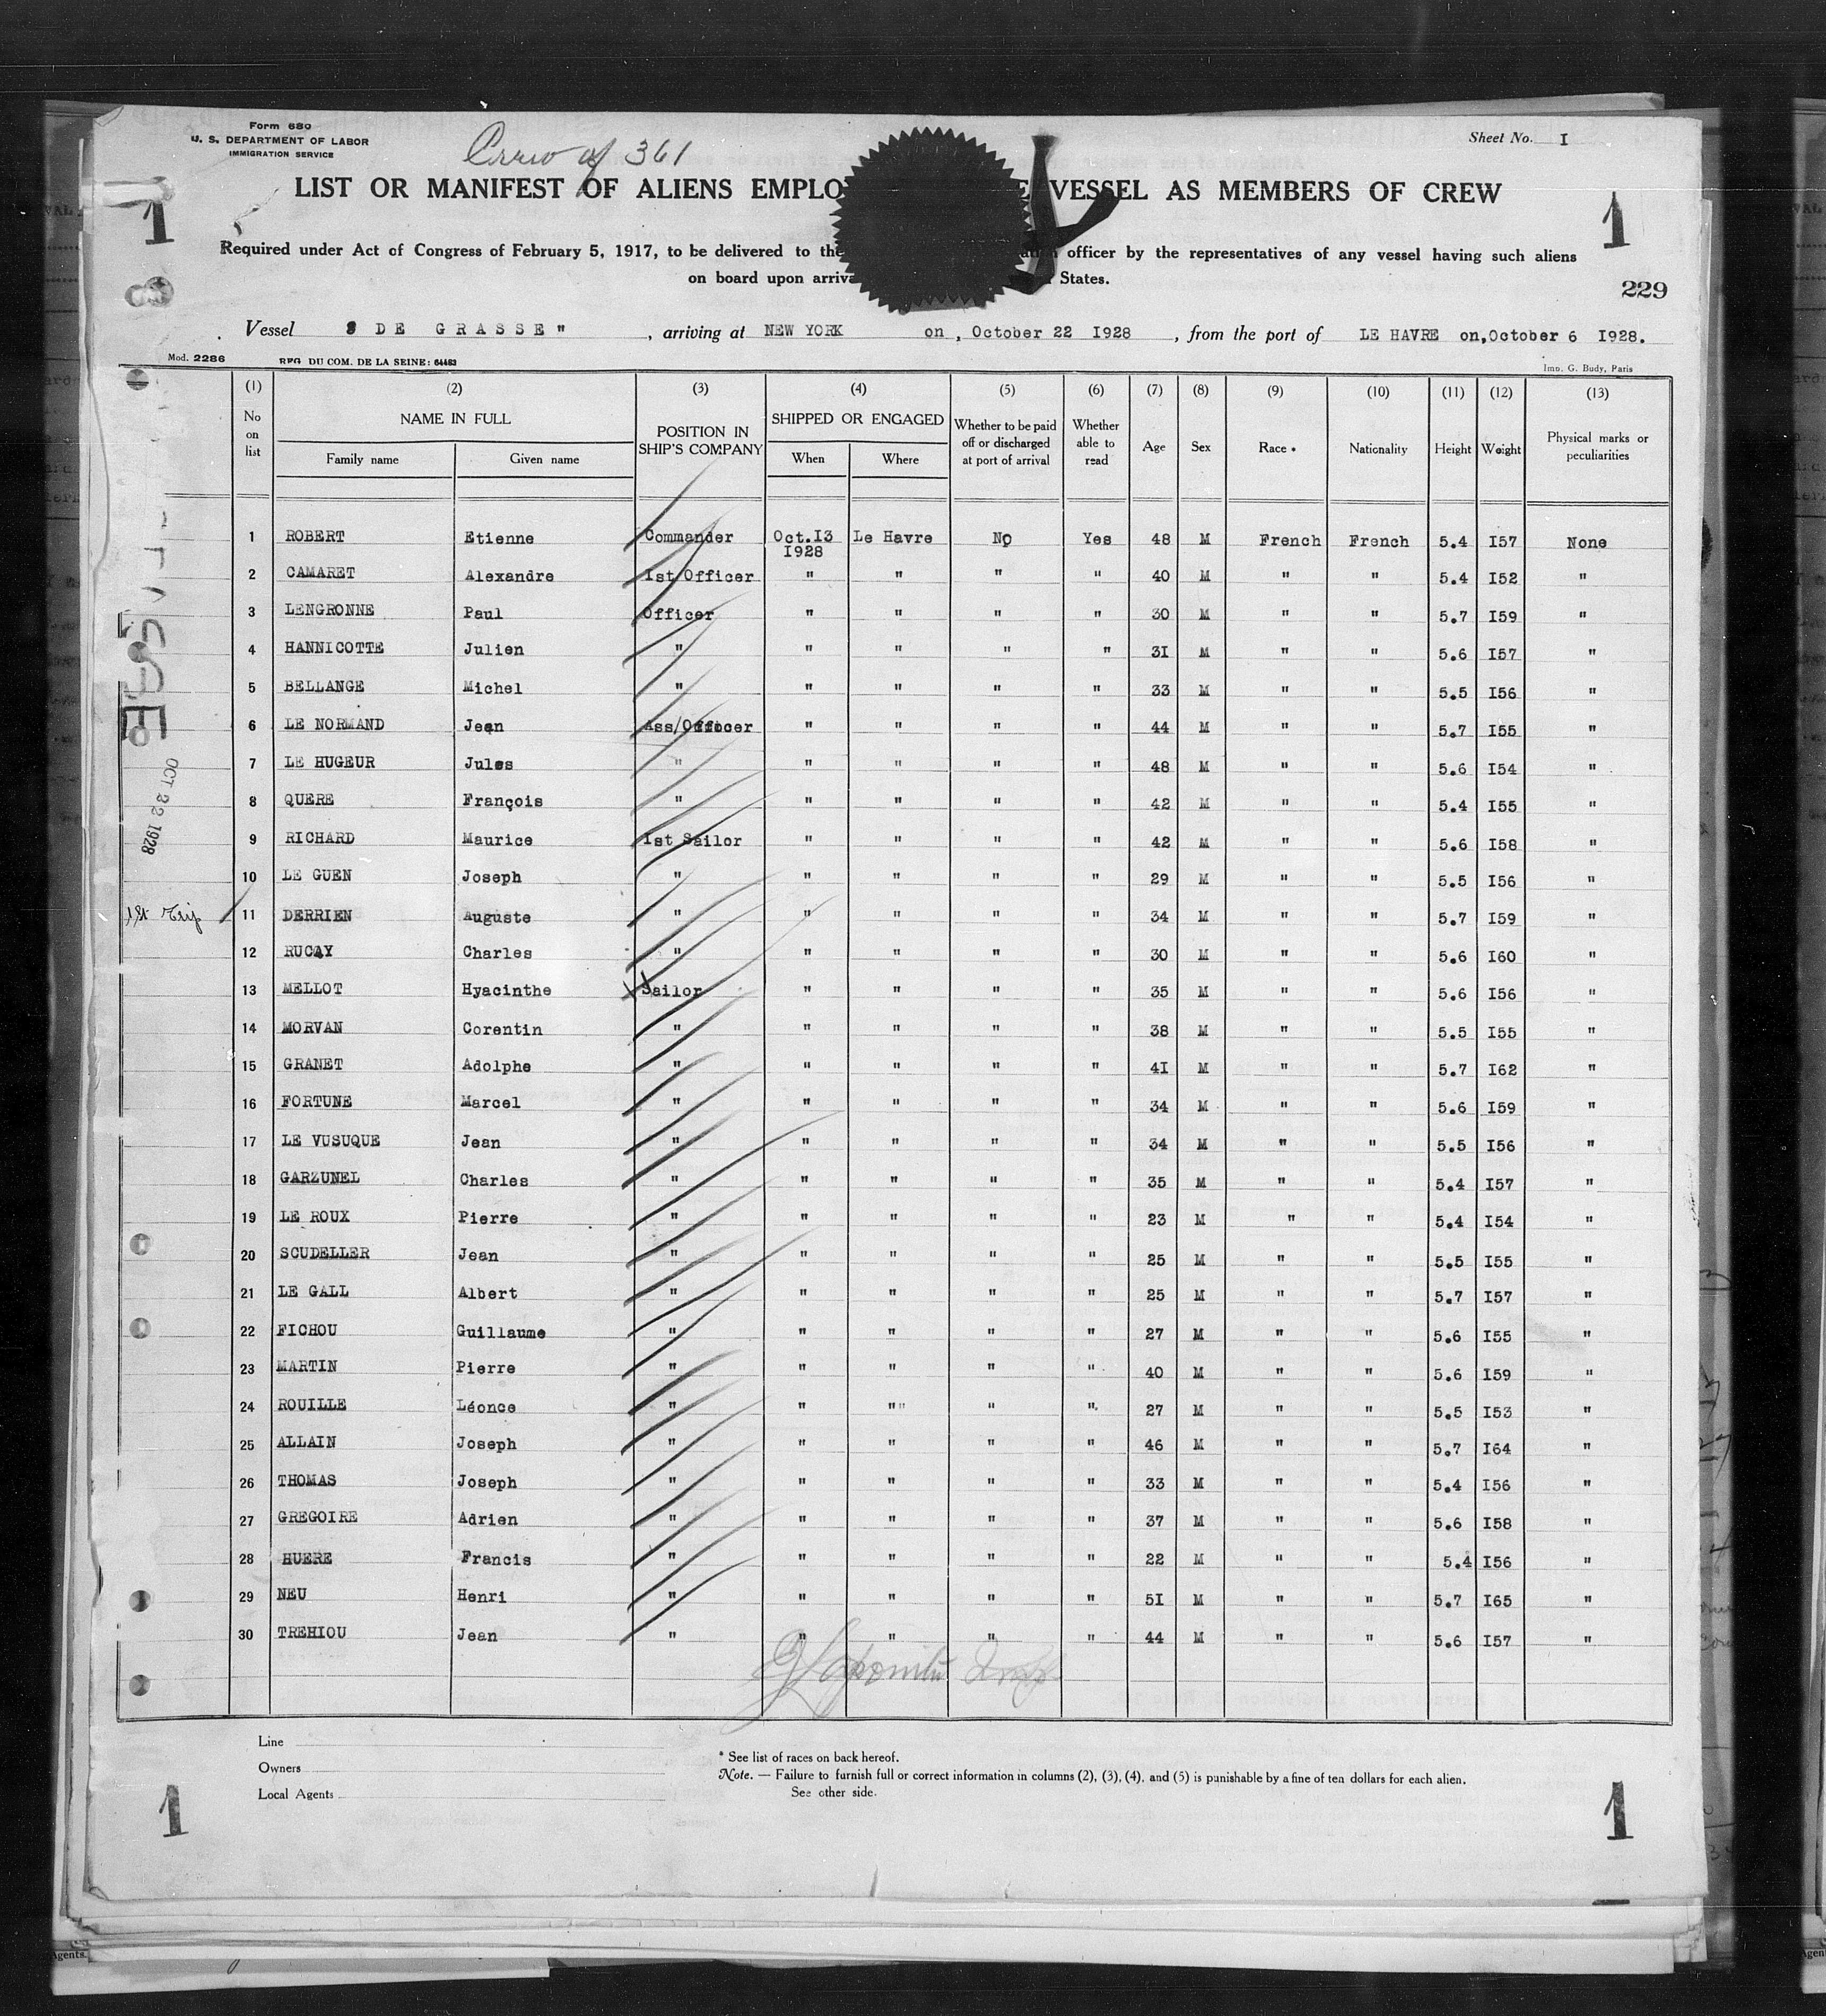 Form 680
U. S. DEPARTMENT OF LABOR
IMMIGRATION SERVICE
Crew of 361
Sheet No. I
LIST OR MANIFEST OF ALIENS EMPLO E VESSEL AS MEMBERS OF CREW
1 1
Required under Act of Congress of February 5, 1917, to be delivered to the officer by the representatives of any vessel having such aliens
on board upon arriva States.
229
Vessel " DE GRASSE " , arriving at NEW YORK on , October 22 I928 , from the port of LE HAVRE on,October 6 I928.
Mod. 2286 REG DU COM. DE LA SEINE: 64483 Imp. G. Budy, Paris
(1) (2) (3) (4) (5) (6) (7) (8) (9) (10) (11) (12) (13)
No on list NAME IN FULL POSITION IN SHIP'S COMPANY SHIPPED OR ENGAGED Whether to be paid off or discharged at port of arrival Whether able to read Age Sex Race * Nationality Height Weight Physical marks or peculiarities
Family name Given name When Where
1 ROBERT Etienne Commander Oct.I3 I928 Le Havre No Yes 48 M French French 5.4 I57 None
2 CAMARET Alexandre Ist/Officer " " " " 40 M " " 5.4 I52 "
3 LENGRONNE Paul Officer " " " " 30 M " " 5.7 I59 "
4 HANNICOTTE Julien " " " " " 3I M " " 5.6 I57 "
5 BELLANGE Michel " " " " " 33 M " " 5.5 I56 "
6 LE NORMAND Jean Ass/Officer " " " " 44 M " " 5.7 I55 "
7 LE HUGEUR Jules " " " " " 48 M " " 5.6 I54 "
8 QUERE François " " " " " 42 M " " 5.4 I55 "
9 RICHARD Maurice Ist Sailor " " " " 42 M " " 5.6 I58 "
10 LE GUEN Joseph " " " " " 29 M " " 5.5 I56 "
1st Trip 11 DERRIEN Auguste " " " " " 34 M " " 5.7 I59 "
12 RUCAY Charles " " " " " 30 M " " 5.6 I60 "
13 MELLOT Hyacinthe Sailor " " " " 35 M " " 5.6 I56 "
14 MORVAN Corentin " " " " " 38 M " " 5.5 I55 "
15 GRANET Adolphe " " " " " 4I M " " 5.7 I62 "
16 FORTUNE Marcel " " " " " 34 M " " 5.6 I59 "
17 LE VUSUQUE Jean " " " " " 34 M " " 5.5 I56 "
18 GARZUNEL Charles " " " " " 35 M " " 5.4 I57 "
19 LE ROUX Pierre " " " " " 23 M " " 5.4 I54 "
20 SCUDELLER Jean " " " " " 25 M " " 5.5 I55 "
21 LE GALL Albert " " " " " 25 M " " 5.7 I57 "
22 FICHOU Guillaume " " " " " 27 M " " 5.6 I55 "
23 MARTIN Pierre " " " " " 40 M " " 5.6 I59 "
24 ROUILLE Léonce " " " " " 27 M " " 5.5 I53 "
25 ALLAIN Joseph " " " " " 46 M " " 5.7 I64 "
26 THOMAS Joseph " " " " " 33 M " " 5.4 I56 "
27 GREGOIRE Adrien " " " " " 37 M " " 5.6 I58 "
28 HUERE Francis " " " " " 22 M " " 5.4 I56 "
29 NEU Henri " " " " " 5I M " " 5.7 I65 "
30 TREHIOU Jean " " " " " 44 M " " 5.6 I57 "
OCT 22 1928
Line
Owners
Local Agents
* See list of races on back hereof.
Note. — Failure to furnish full or correct information in columns (2), (3), (4), and (5) is punishable by a fine of ten dollars for each alien.
See other side.
1 1